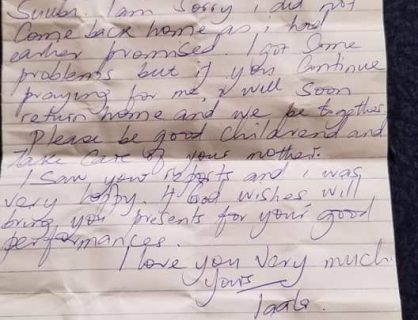 I am sorry i did not
Come back home as i had
earlier promised. I got Some
problems but if you Continue
praying for me, i will Soon
return home and we be together
Please be good Childrend and
take Care of your mother.
I Saw your reports and i was
very happy. If God wishes will
bring you presents for your good
performances.
I love you very much.
yours